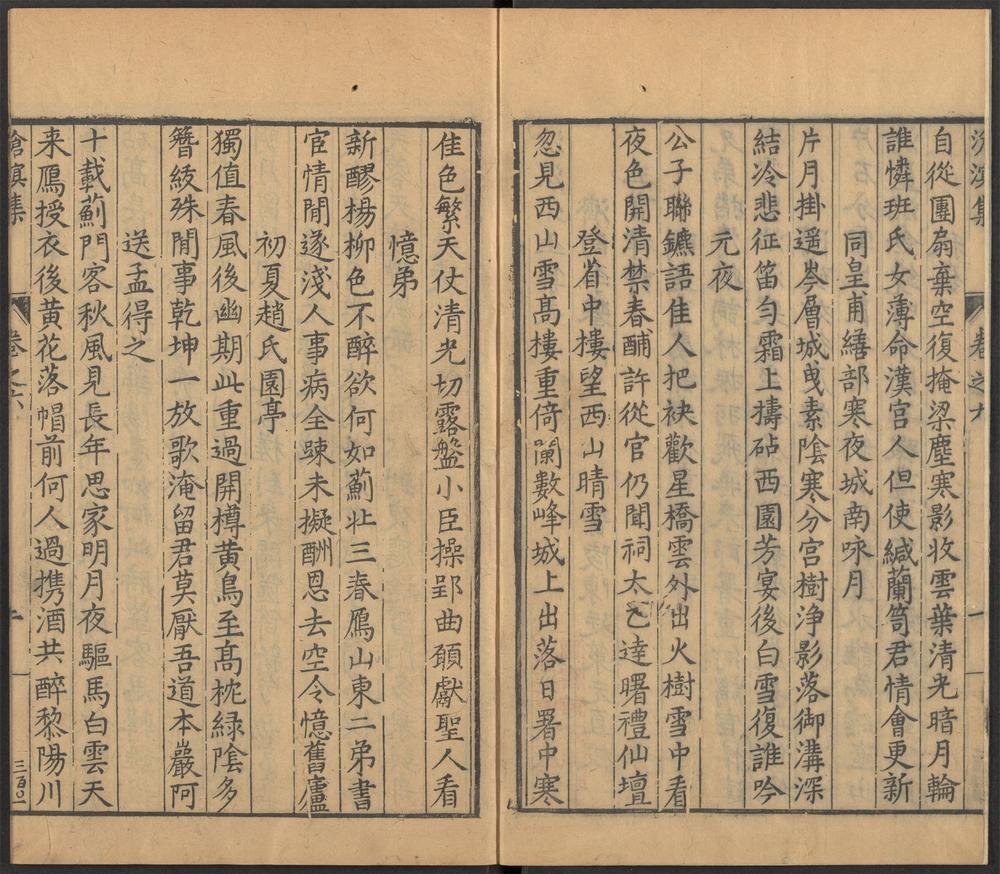 滄溟集 卷之六 一
自從團扇棄空復掩梁塵寒影收雲葉清光暗月輪
誰憐班氏女薄命漢宫人但使緘蘭笥君情會更新
同皇甫繕部寒夜城南咏月
片月掛遥岑層城曳素陰寒分宫樹浄影落御溝深
結冷悲征笛勻霜上擣砧西園芳宴後白雪復誰吟
元夜
公子聯鑣語佳人把袂歡星橋雲外出火樹雪中看
夜色開清禁春酺許從官仍聞祠太乙達曙禮仙壇
登省中樓望西山晴雪
忽見西山雪髙樓重倚闌數峰城上出落日署中寒
佳色繁天仗清光切露盤小臣操郢曲頋獻聖人看
憶弟
新醪楊柳色不醉欲何如薊北三春鴈山東二弟書
宦情閒遂淺人事病全踈未擬酬恩去空令憶舊廬
初夏趙氏園亭
獨值春風後幽期此重過開樽黄鳥至髙枕緑陰多
簪紱殊閒事乾坤一放歌淹留君莫厭吾道本巖阿
送孟得之
十載薊門客秋風見長年思家明月夜驅馬白雲天
来鴈授衣後黄花落帽前何人過携酒共醉黎陽川
滄溟集 卷之六 二 三百○一